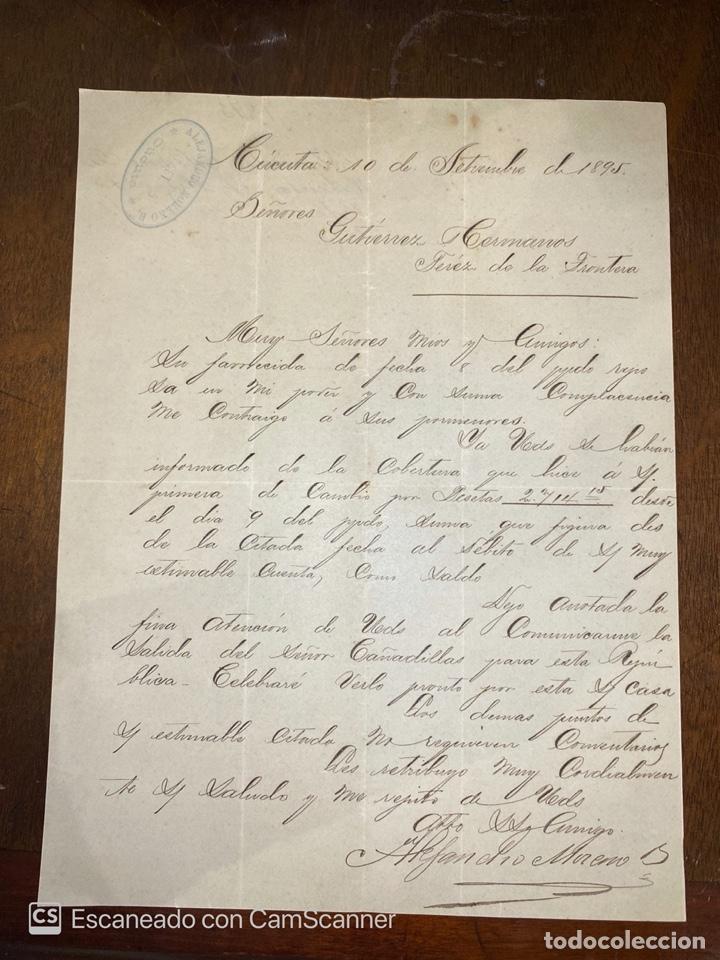 ALEJANDRO MORENO B.
Cúcuta
Cúcuta: 10 de Setiembre de 1895.
Señores
Gutiérrez Hermanos
Jeréz de la Frontera
Muy Señores mios y Amigos:
Su favorecida de fecha 8 del ppdo repo
sa en mi poder y con suma complacencia
me contraigo á sus pormenores.
Ya Uds se habrán
informado de la cobertura que hice á S/
primera de Cambio por Pesetas 2.714 15 desde
el dia 9 del ppdo, suma que figura des
de la citada fecha al débito de S/ muy
estimable cuenta, como saldo
Dejo anotada la
fina atención de Uds al comunicarme la
salida del Señor Cañadillas para esta Repú
blica - Celebraré verlo pronto por esta S/ casa
Los demas puntos de
S/ estimable citada no requieren comentarios
Les retribuyo muy cordialmen
te S/ saludo y me repito de Uds
Atto SS y Amigo.
Alejandro Moreno B
CS Escaneado con CamScanner
todocoleccion